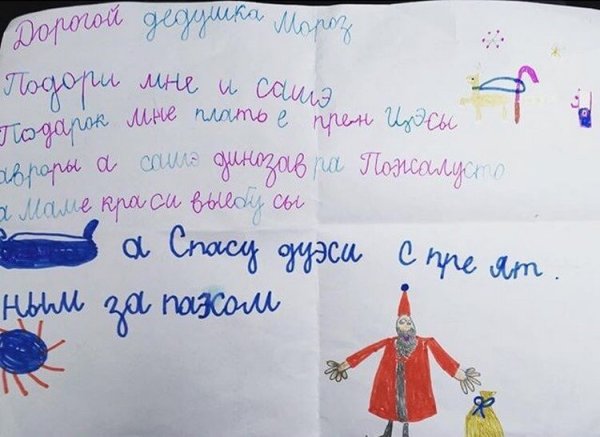 Дорогой дедушка Мороз
Подори мне и сашэ
Подарок мне платье прен Цэсы
авроры а сашэ динозав ра Пожалусто
а маме краси выебу сы
а Спасу дуэси с пре ят.
ным за пахом